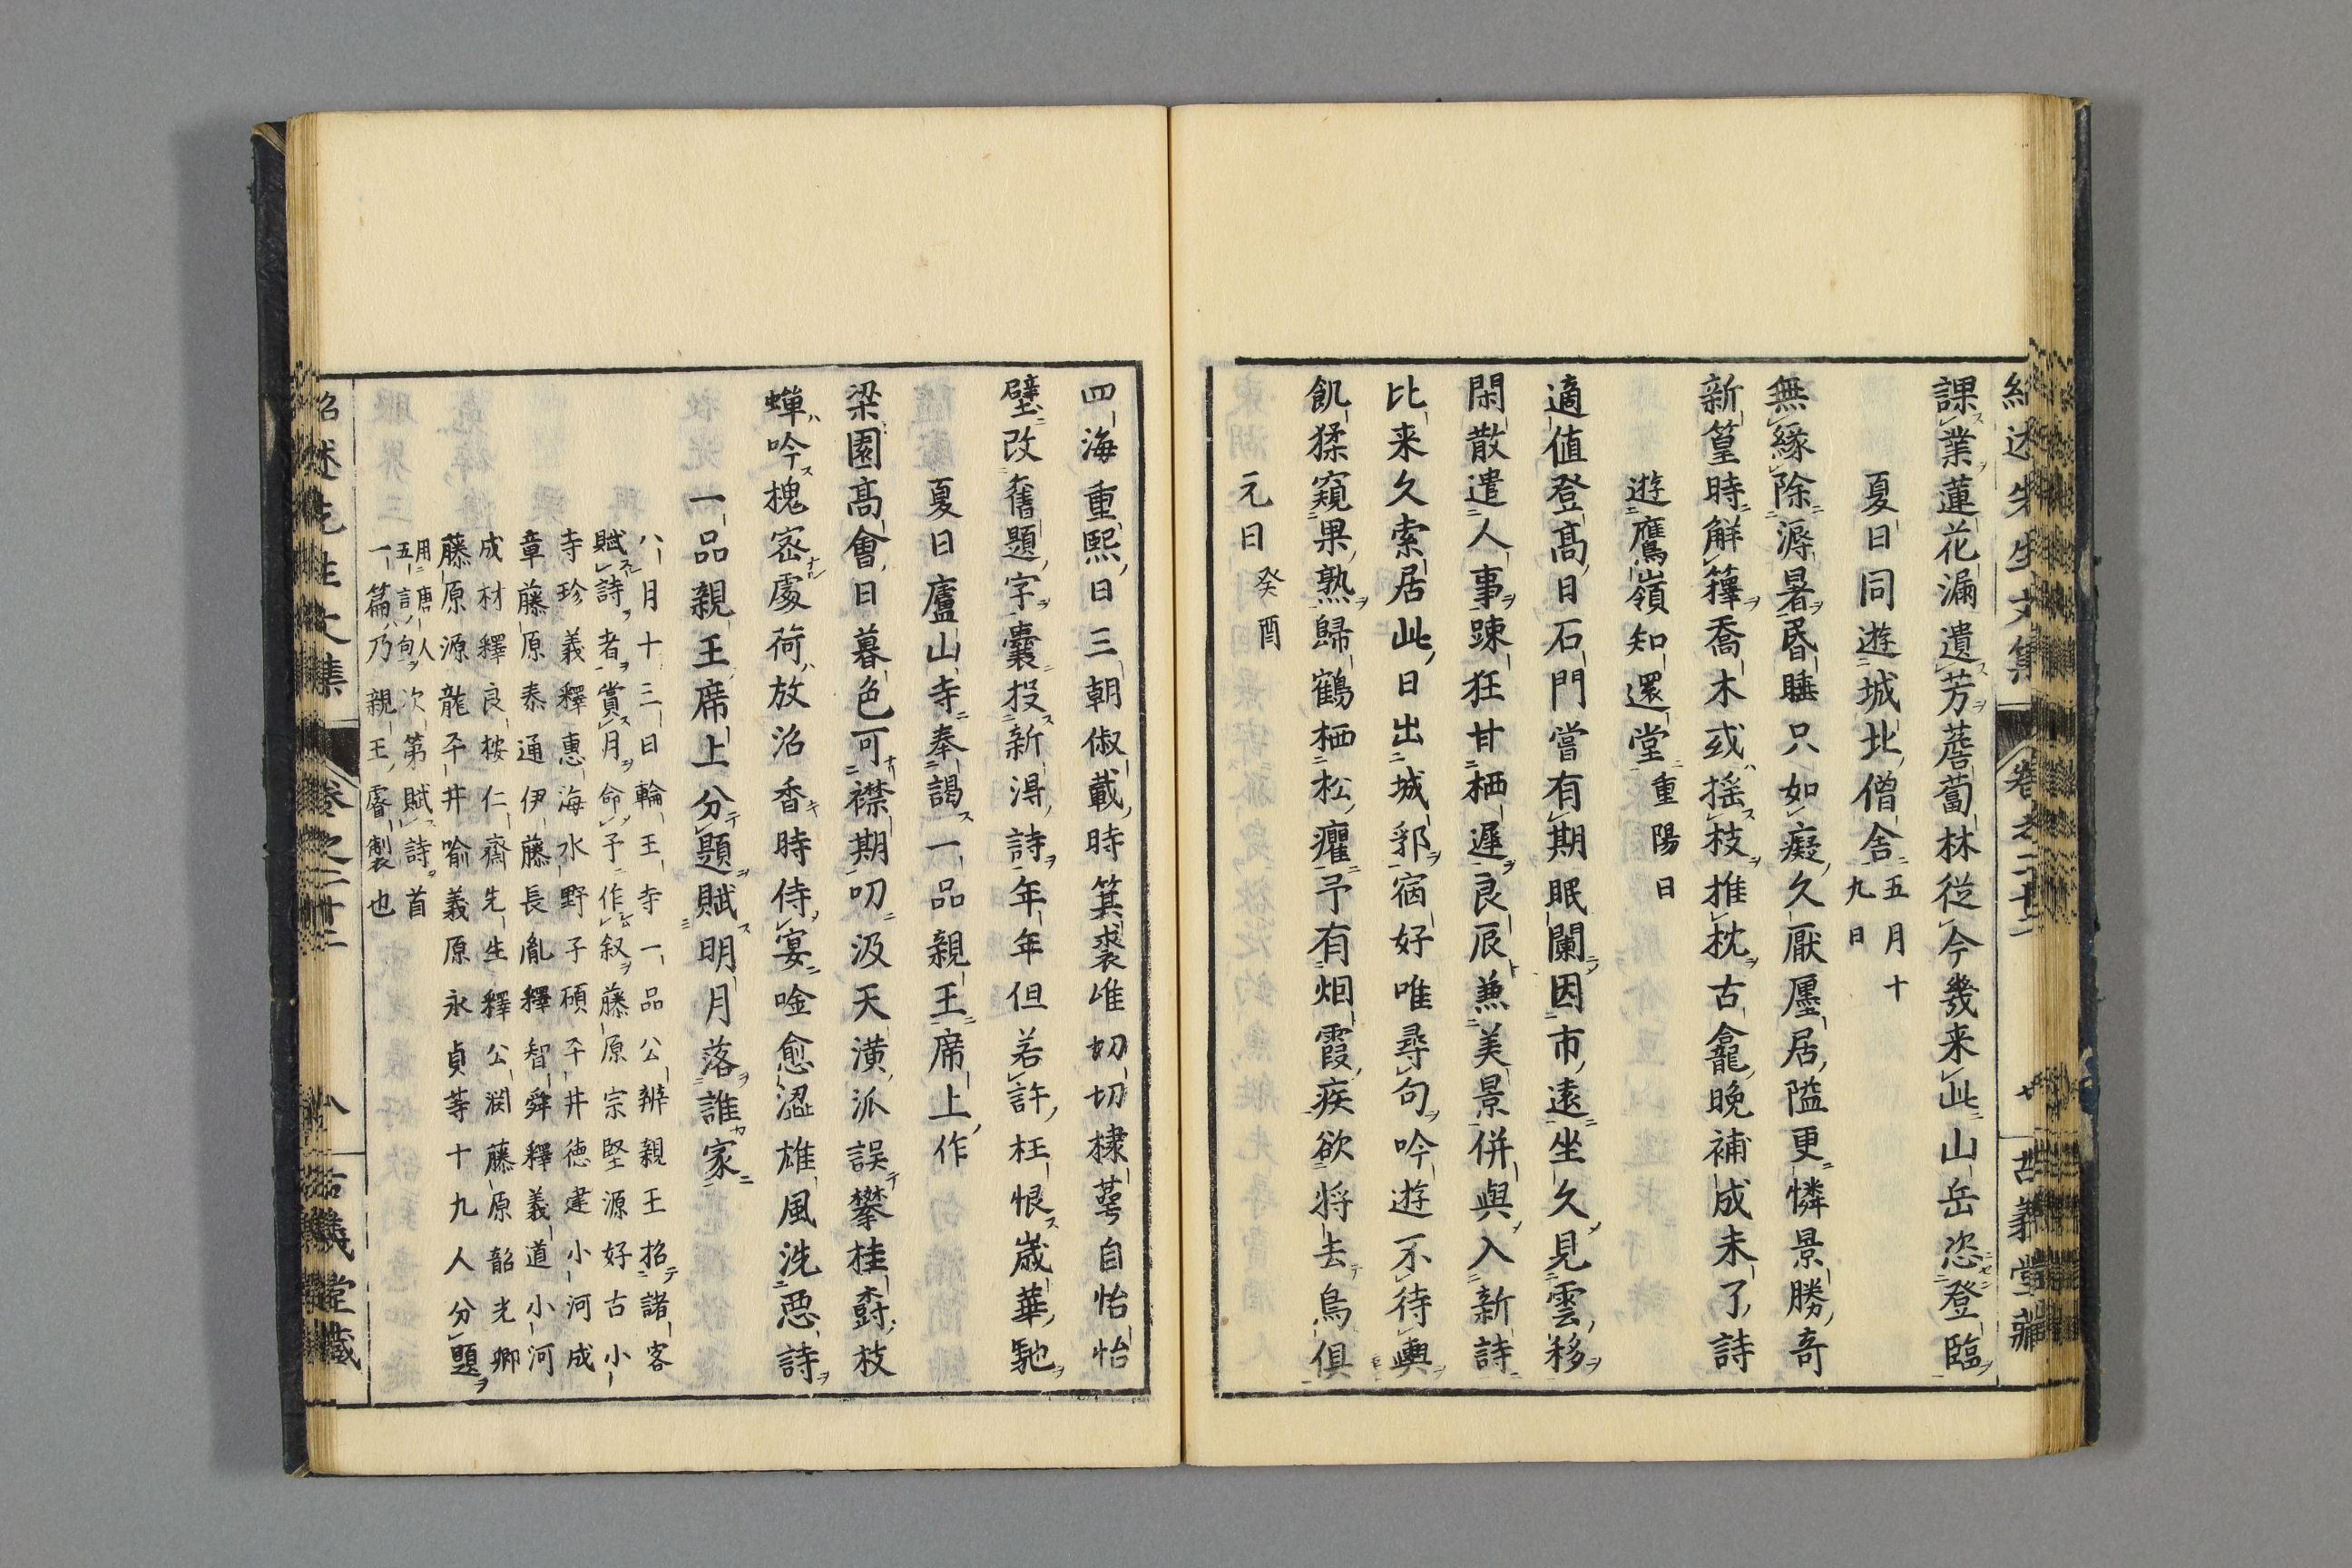 紹述先生文集 卷之二十二 古義堂藏
課業蓮花漏遺芳薝蔔林從今幾来此山岳恣登臨
夏日同遊城北僧舍五月十九日
無緣除溽暑昏睡只如癡久厭廛居隘更憐景勝奇
新篁時解籜喬木或摇枝推枕古龕晚補成未了詩
遊鷹嶺知還堂重陽日
適値登髙日石門嘗有期眠闌因市遠坐久見雲移
閑散遣人事踈狂甘栖遲良辰兼美景併與入新詩
比来久索居此日出城郛宿好唯尋句吟遊不待輿
飢猱窺果熟歸鶴栖松癯予有烟霞疾欲将去鳥俱
元日癸酉
四海重熙日三朝俶載時箕裘唯切切棣萼自怡怡
壁改舊題字囊投新淂詩年年但若許枉恨嵗華馳
夏日廬山寺奉謁一品親王席上作
梁園髙會日暮色可襟期叨汲天潢派誤攀桂樹枝
蟬吟槐宻處荷放沼香時侍宴唫愈澀雄風洗惡詩
一品親王席上分題賦明月落誰家
八月十三日輪王寺一品公辨親王招諸客
賦詩者賞月命予作叙藤原宗堅源好古小
寺珍義釋惠海水野子碩平井德建小河成
章藤原泰通伊藤長胤釋智舜釋義道小河
成材釋良桉仁齋先生釋公潤藤原韶光卿
藤原源龍平井喻義原永貞等十九人分題
用唐人五言句次第賦詩首
一篇乃親王睿製也
紹述先生文集 卷之二十二 八 古義堂藏